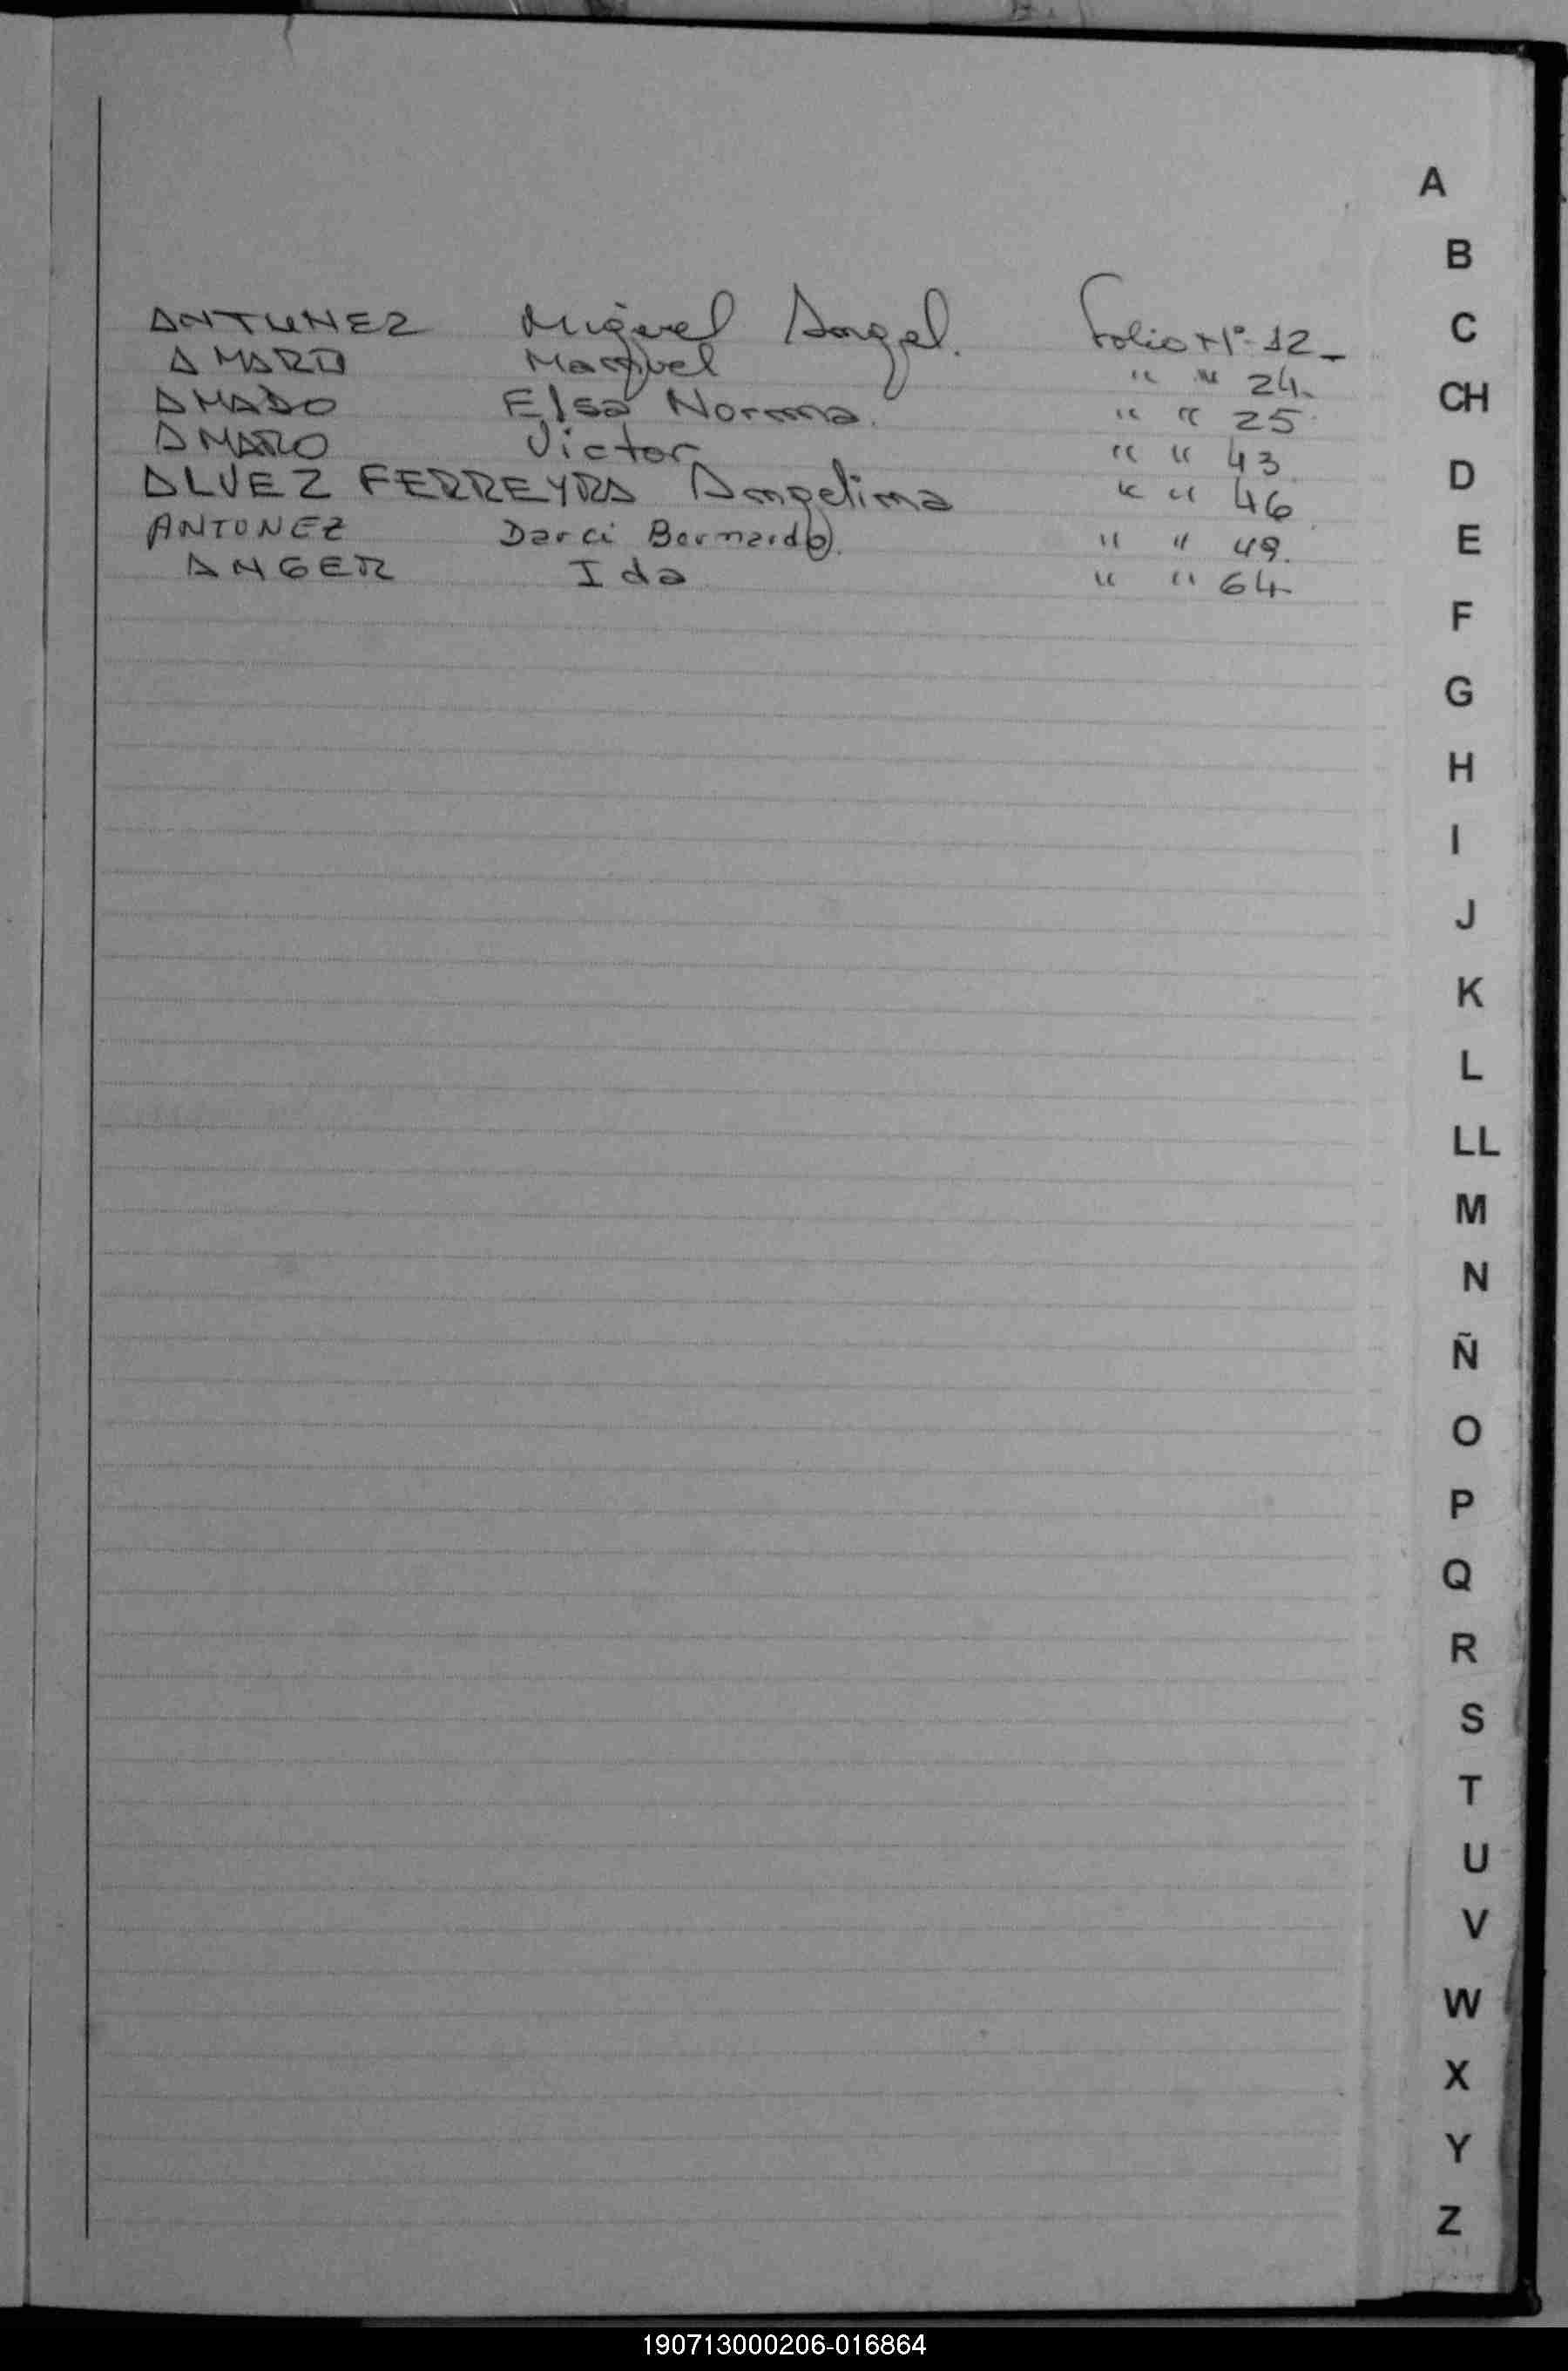 ANTUNEZ Miguel Angel. Folio Nº 12_
AMARO Manuel " " 24.
AMADO Elsa Norma. " " 25
AMARO Victor " " 43
ALVEZ FERREYRA Angelina " " 46
ANTUNEZ Darci Bernardo. " " 49.
ANGER Ida " " 64
A
B
C
CH
D
E
F
G
H
I
J
K
L
LL
M
N
Ñ
O
P
Q
R
S
T
U
V
W
X
Y
Z
190713000206-016864